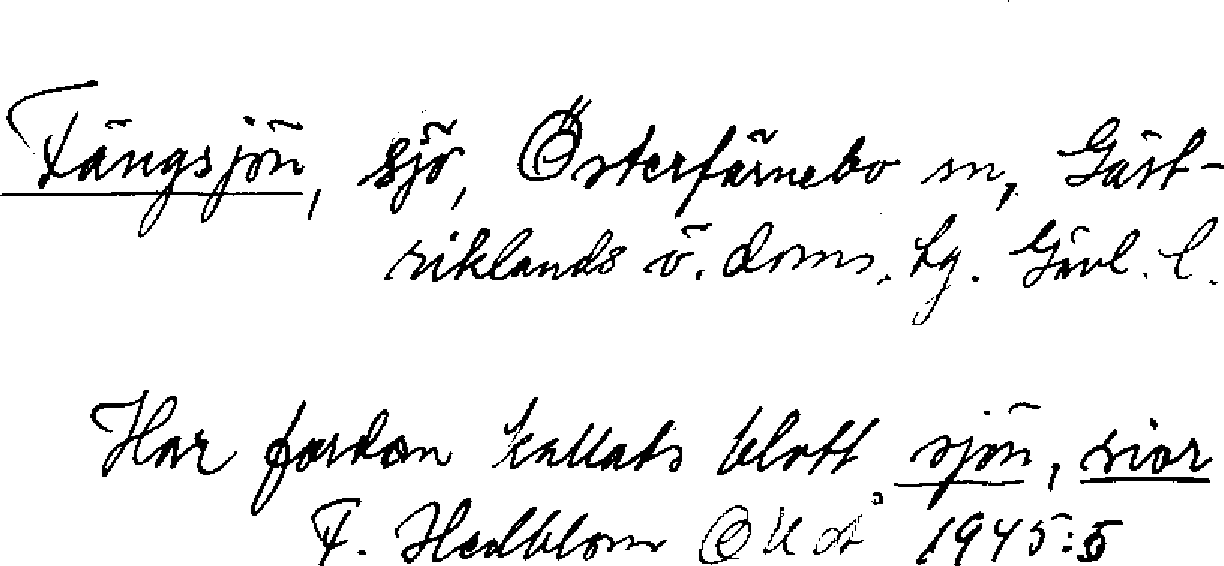 Fängsjön, sjö, Österfärnebo sn, Gäst-
riklands ö. doms. hg. Gävl. l.
Har fordom kallats blott sjön, sior
F. Hedblom OUÅ 1945:5